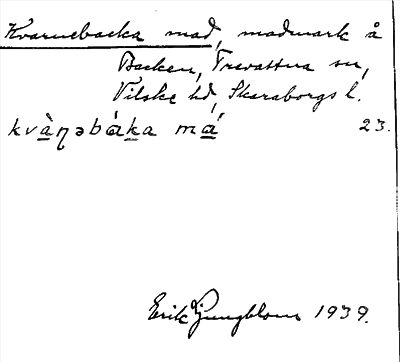 Kvarnebacka mad, madmark å
Backen, Trevattna sn,
Vilske hd, Skaraborgs l.
kvàꞃəbáka má 23.
Erik Ljungblom 1939.